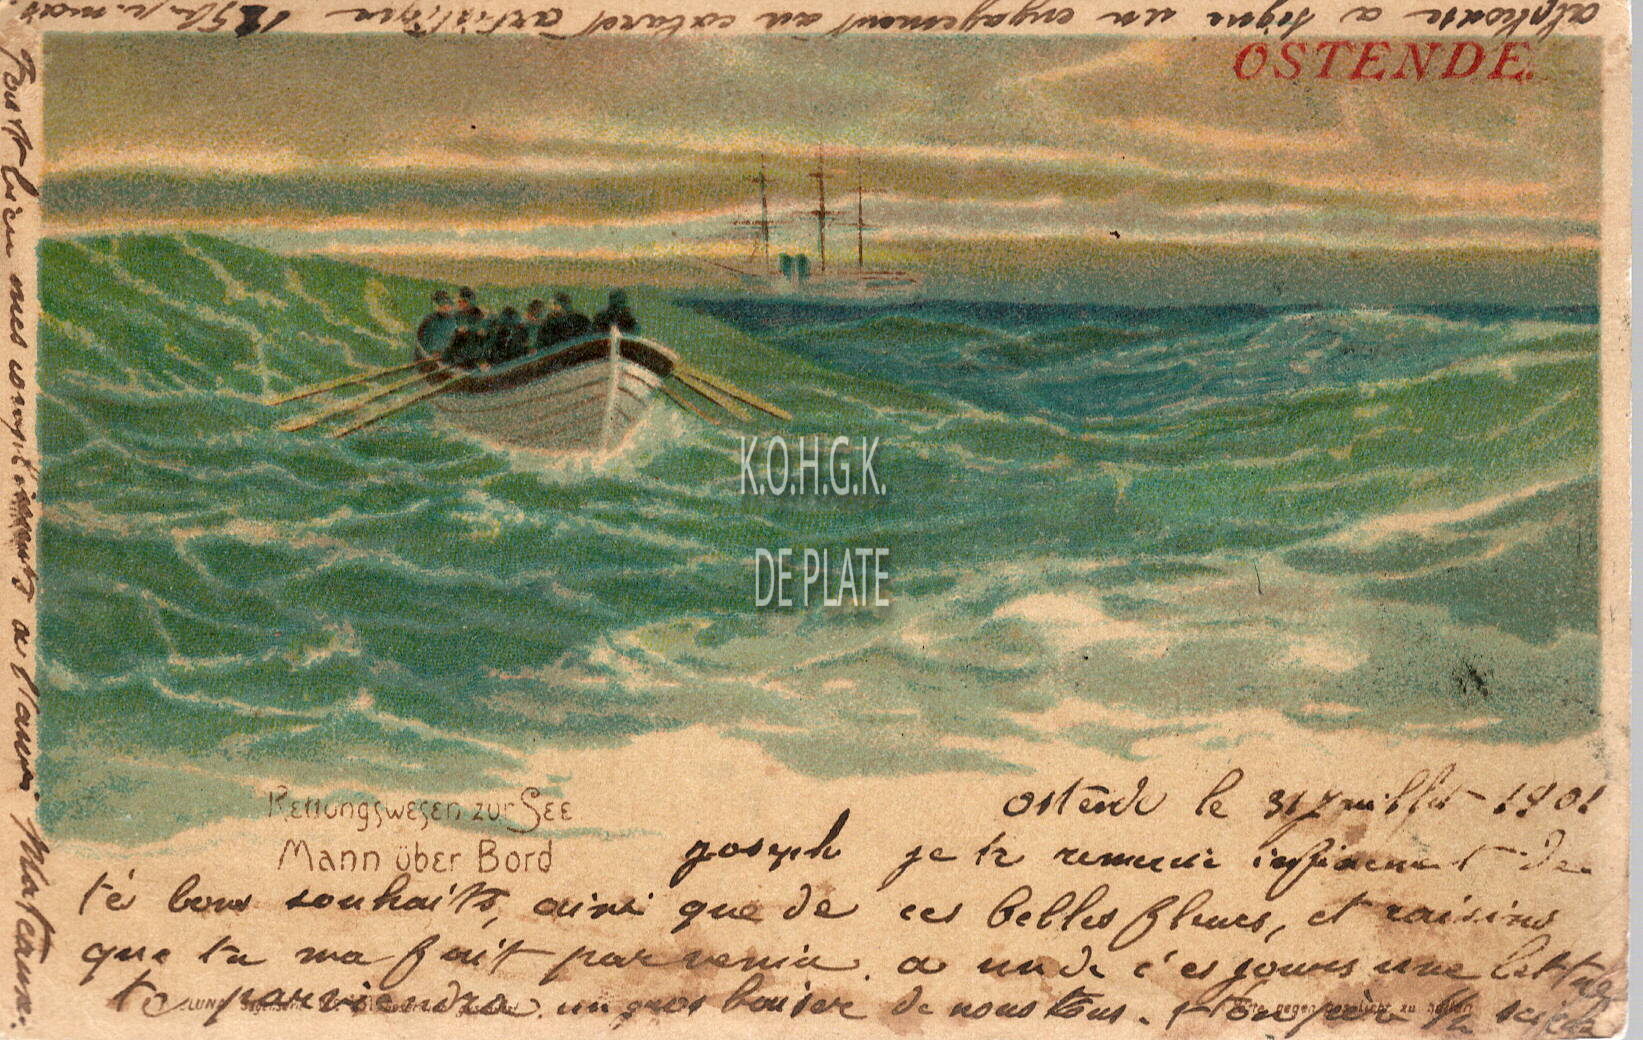 OSTENDE.
K.O.H.G.K.
DE PLATE
Rettungswesen zur See
Mann über Bord
ostende le 31 juillet 1901
joseph je te remercie infiniment de
té bons souhaits, ainsi que de ces belles fleurs, et raisins
que tu ma fait parvenir. a un de c'es jours une lettre
te parviendra. un gros baiser de nous tous. ton père
Tout bien mes compliments a Mami
alphonse a signé un engagement au cabaret artistique